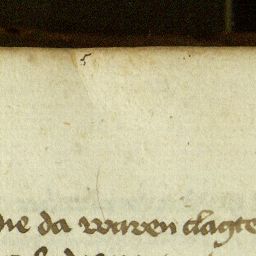 5
die da waren clagte